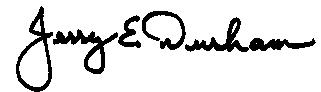 Jerry E. Durham